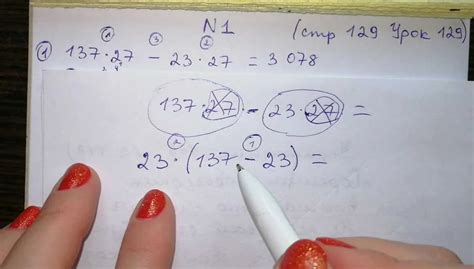 N1 (стр 129 Урок 129)
① ③ ②
① 137·27 - 23·27 = 3 078
137·27 - 23·27 =
② ①
23·(137 - 23) =